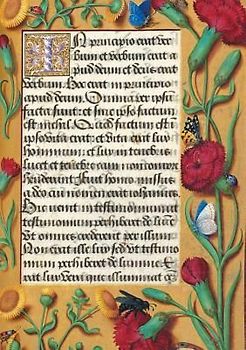 In principio erat ver
bum et verbum erat a
pud deum et deus erat
verbum. Hoc erat in principio
apud deum. Omnia per ipsu
facta sunt: et sine ipso factum
est nichil. Quod factum est in
ipso vita erat: et vita erat lux
hominum: et lux in tenebris
lucet et tenebre eam non compre
henderunt. Fuit homo missus
a deo cui nomen erat iohannes.
Hic venit in testimonium ut
testimonium perhiberet de lumi
ut omnes crederent per illum
Non erat ille lux sed ut testimo
nium perhiberet de lumine
Erat lux vera que illuminat